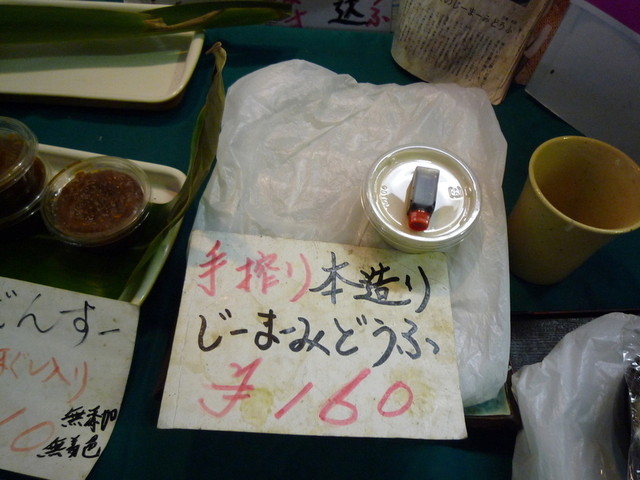 手搾り本造り
じーまーみどうふ
¥160
どんすー
ほぐし入り
10
無添加
無着色